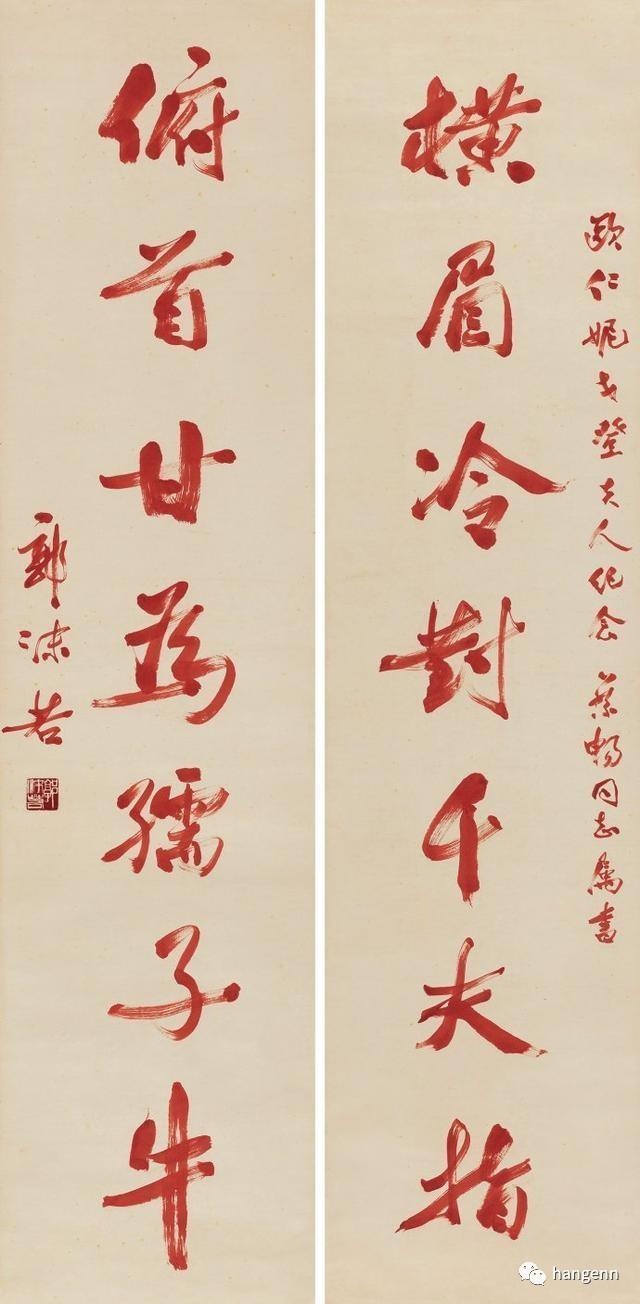 歐仁妮戈登夫人纪念 蔡畅同志属書
横眉冷對千夫指
俯首甘為孺子牛
郭沫若
郭沫若
hangenn